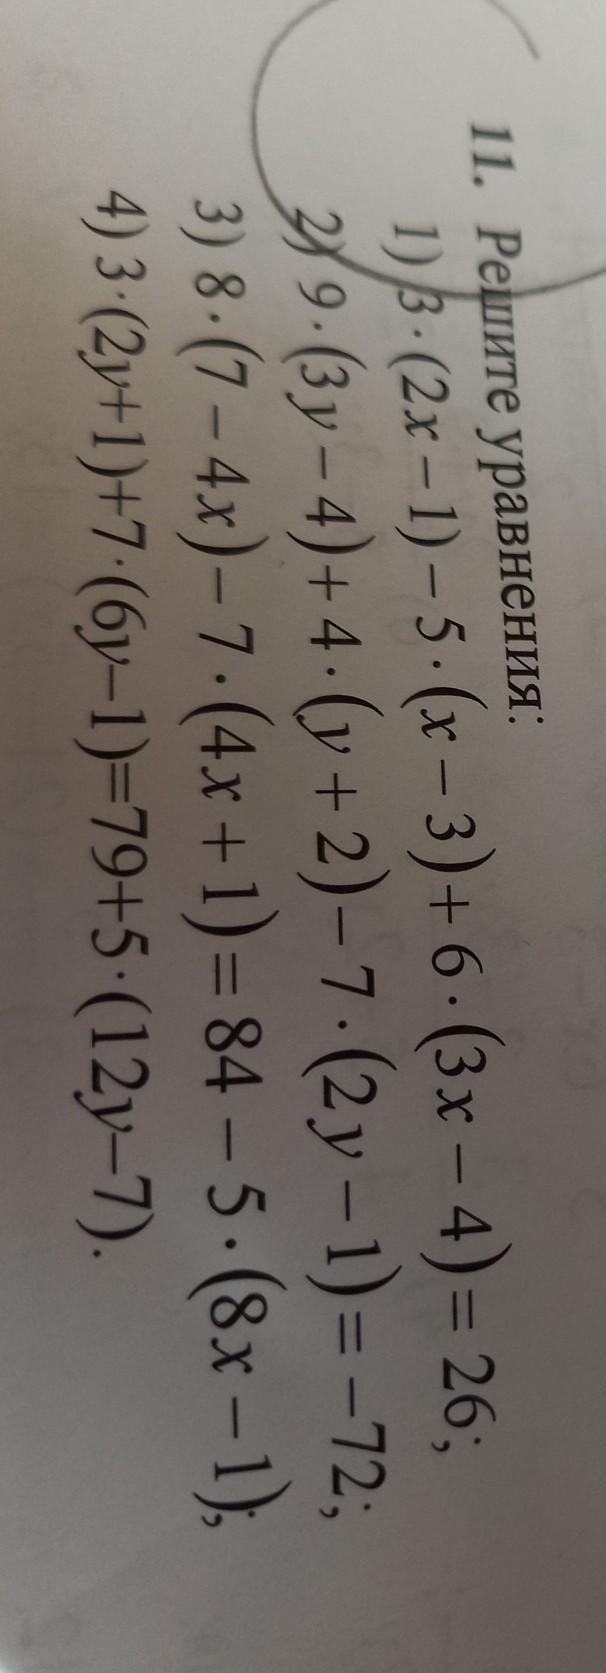 11. Решите уравнения:
1) 3·(2x – 1) – 5·(x – 3) + 6·(3x – 4) = 26;
2) 9·(3y – 4) + 4·(y + 2) – 7·(2y – 1) = –72;
3) 8·(7 – 4x) – 7·(4x + 1) = 84 – 5·(8x – 1);
4) 3·(2y+1)+7·(6y–1)=79+5·(12y–7).